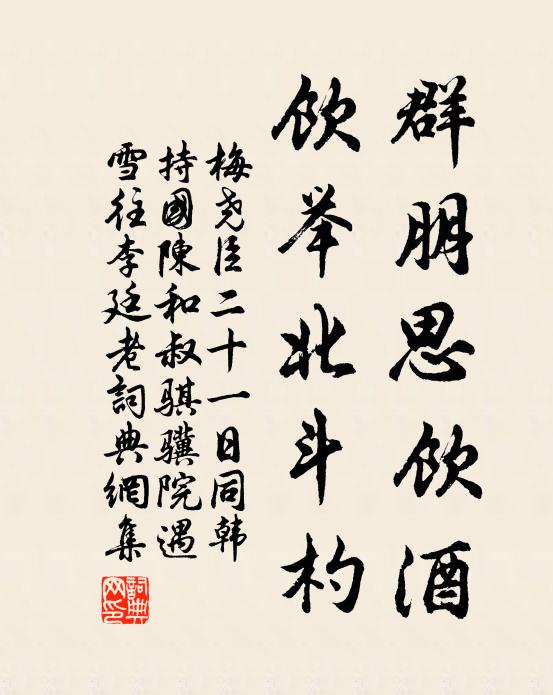 群朋思饮酒
饮举北斗杓
梅尧臣二十一日同韩
持國陳和叔骐骥院遇
雪往李廷老詞典網集
詞典网印